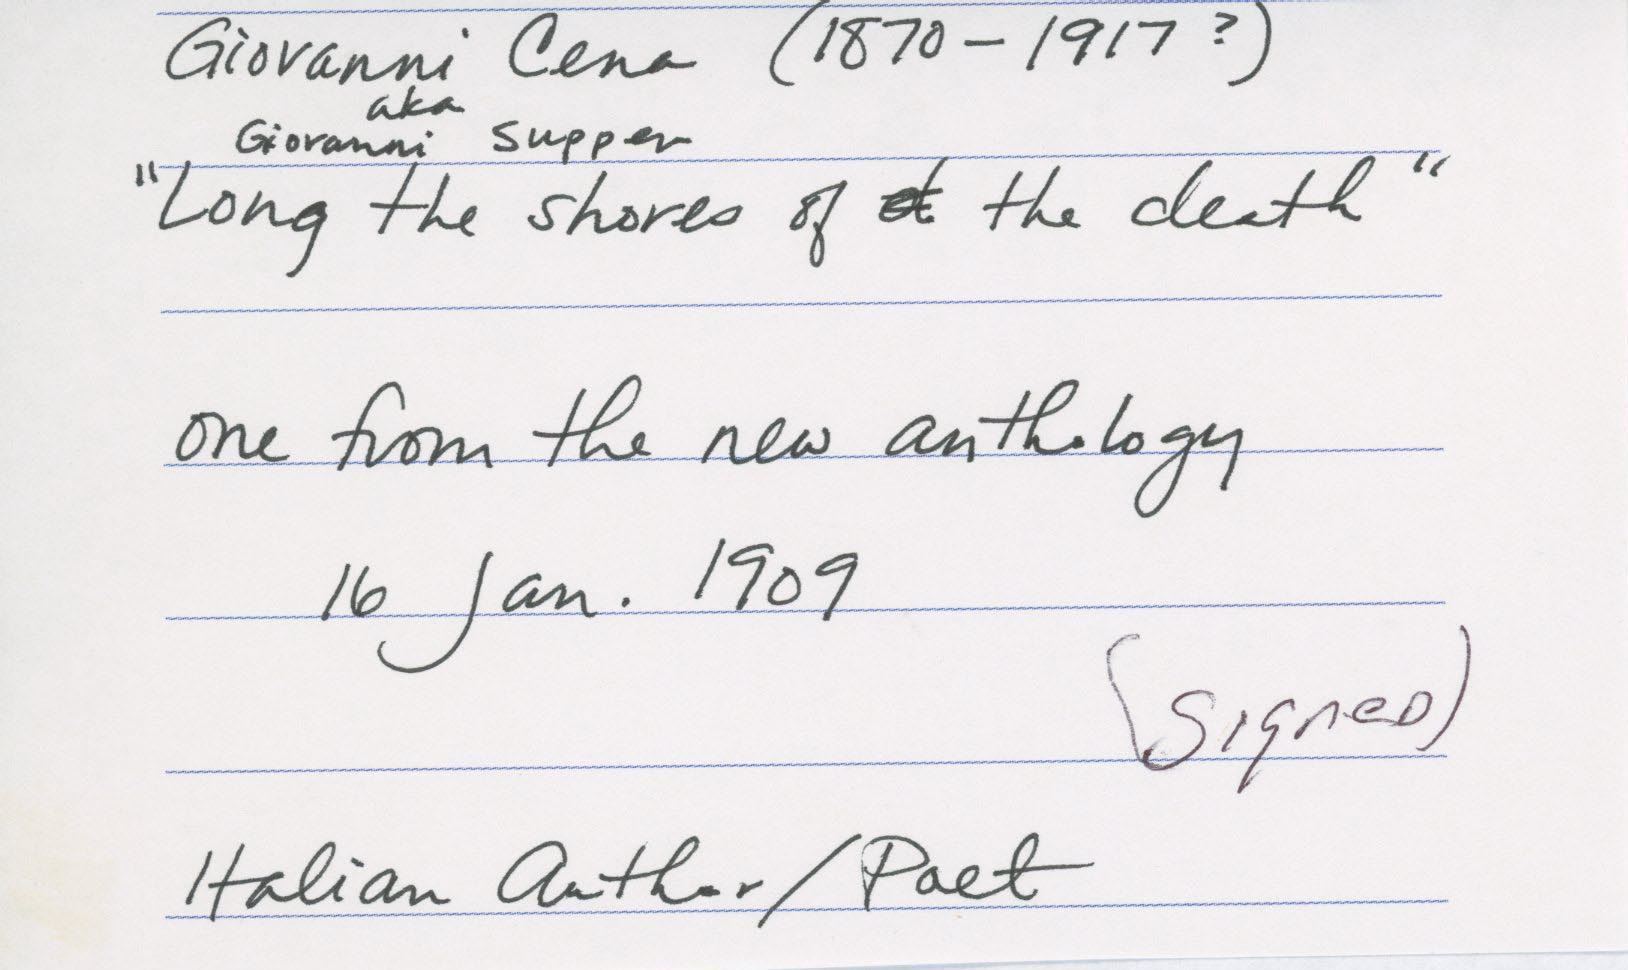 Giovanni Cena (1870 - 1917?)
aka
Giovanni Supper
"Long the shores of the death"
one from the new anthology
16 Jan. 1909
(Signed)
Italian Author/Poet